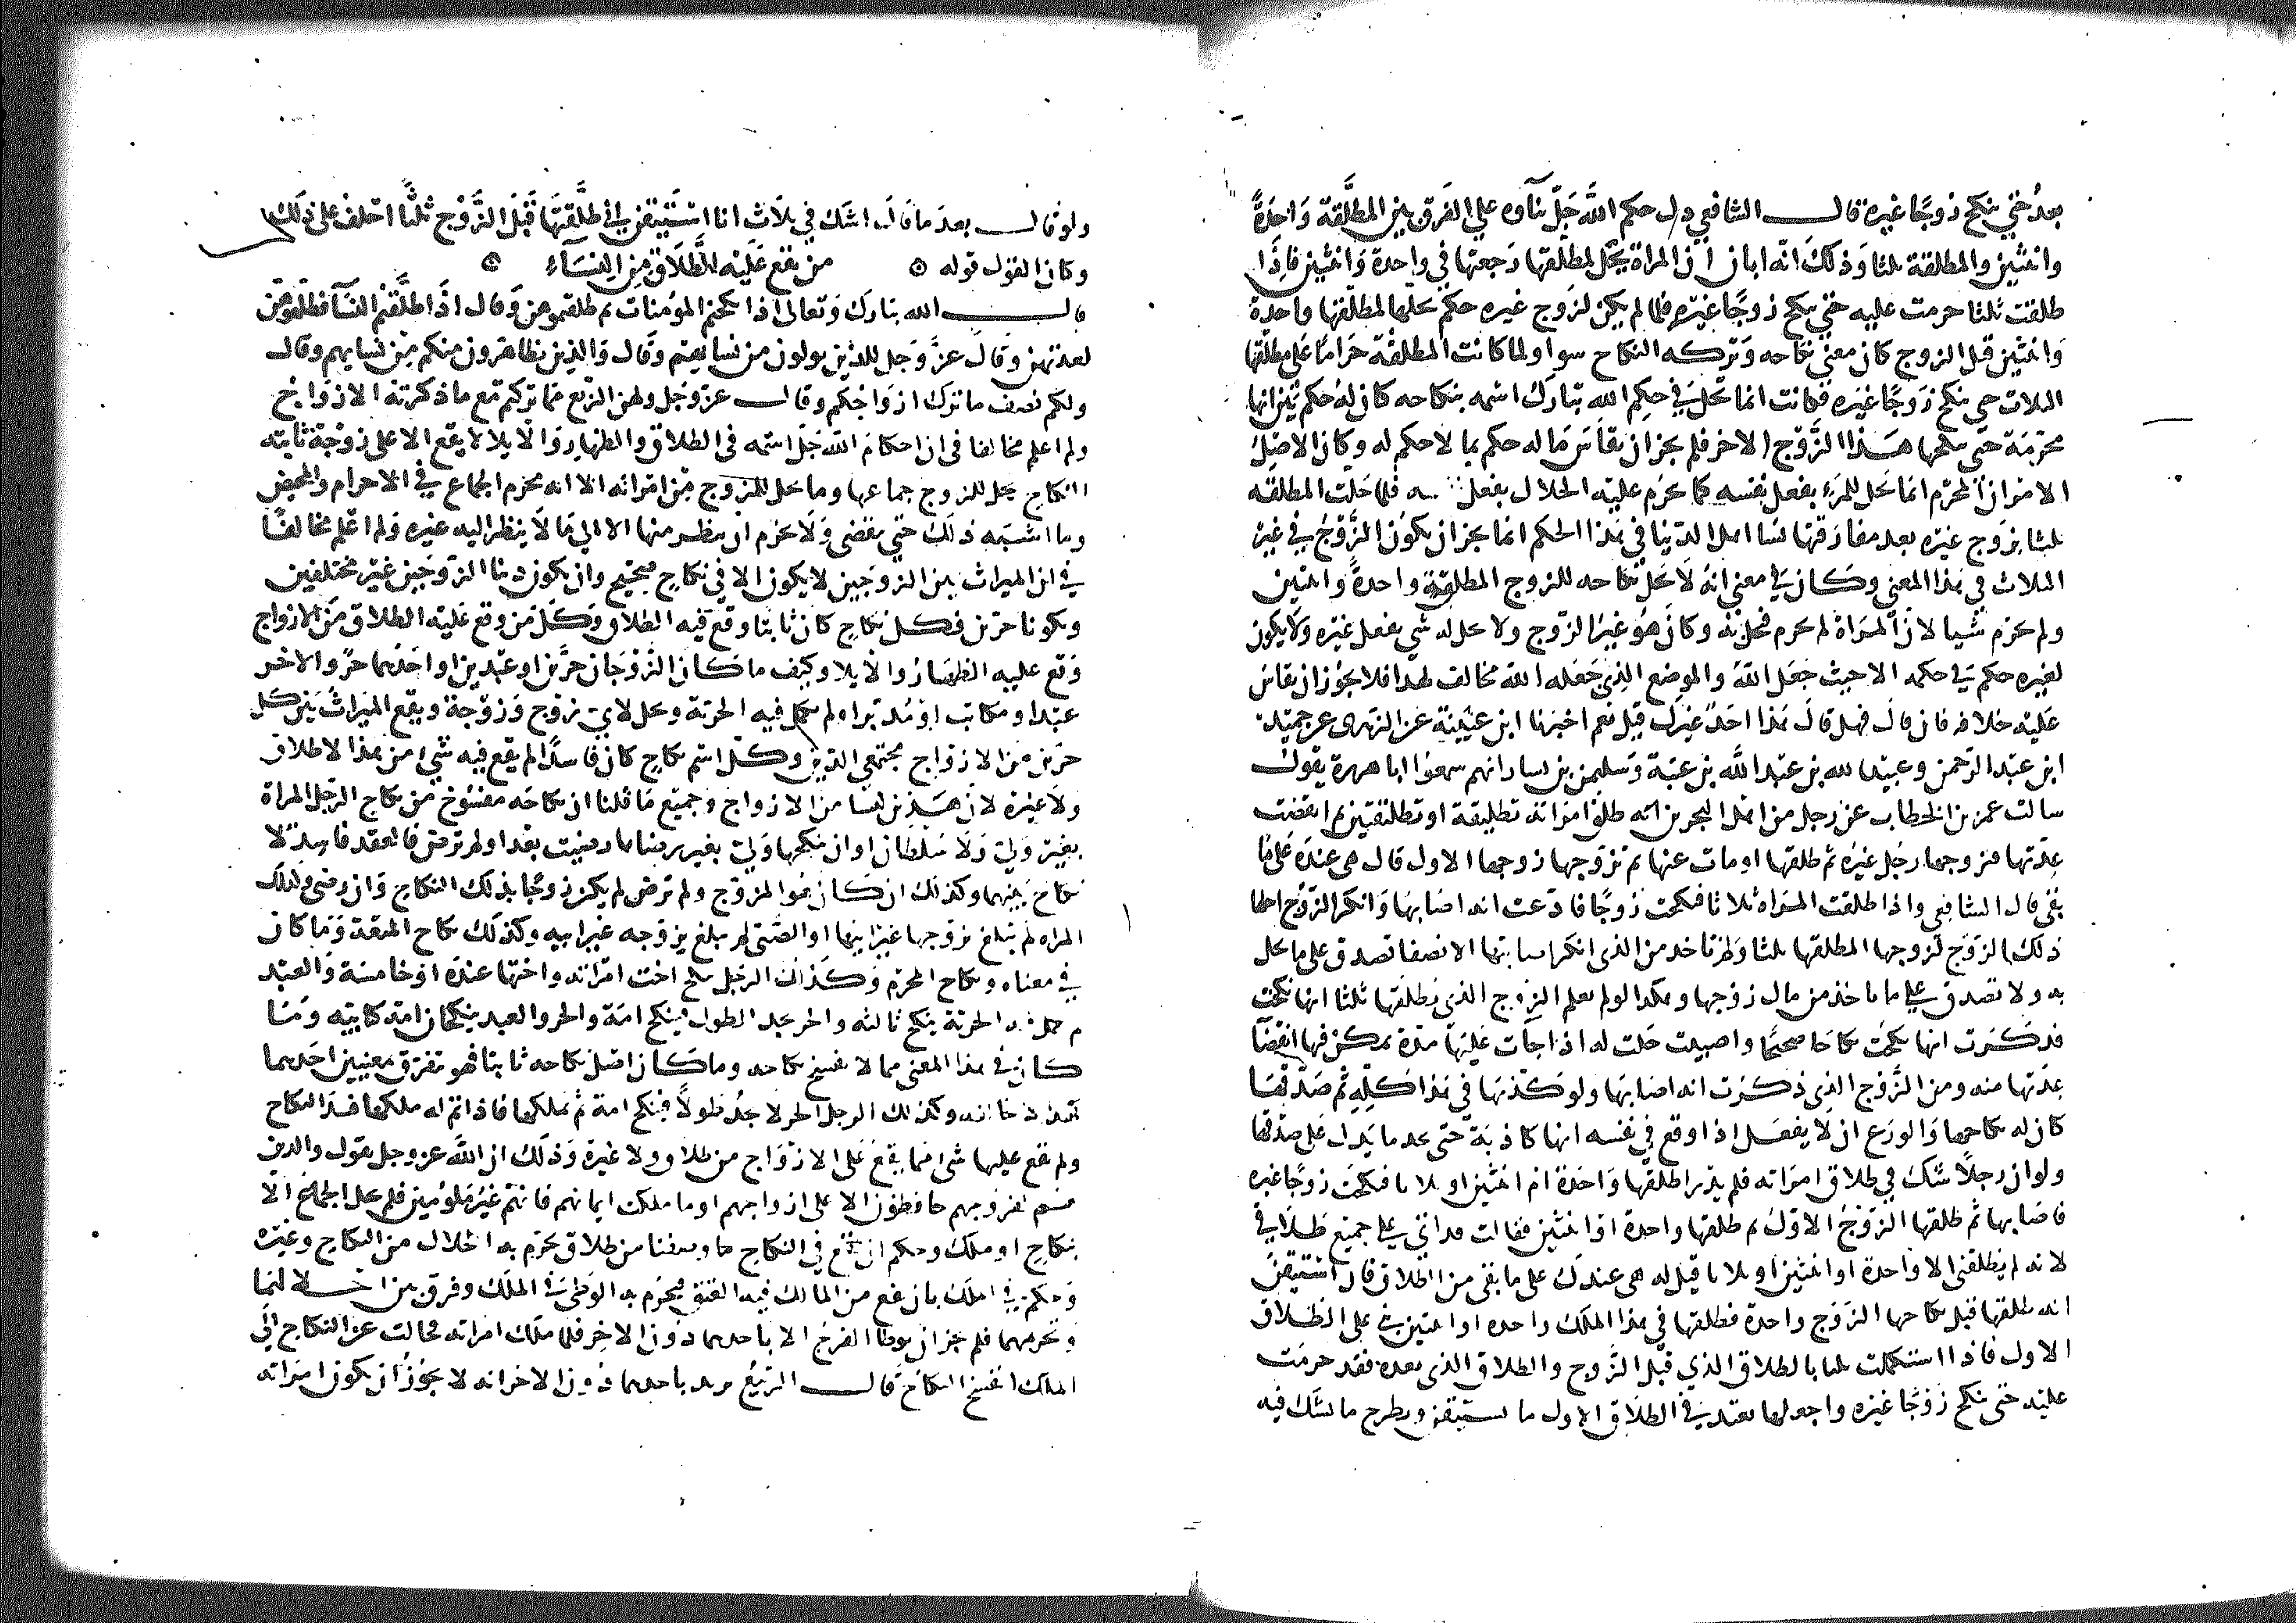 بعد حتي ينكح زوجا غيره قال الشافعي دل حكم الله جل ثناوه علي الفرق بين المطلقة واحدة
واثنتين والمطلقة ثلثا وذلك انه ابان ان المراة يحل لمطلقها رجعتها في واحدة واثنتين فاذا
طلقت ثلثا حرمت عليه حتي ينكح زوجا غيره فلما لم يكن لزوج غيره حكم يحلها لمطلقها واحدة
واثنتين قبل الزوج كان معني نكاحه وتركه النكاح سوا ولما كانت المطلقة حراما علي مطلقها
الثلاث حتي ينكح زوجا غيره فكانت انما تحل في حكم الله تبارك اسمه بنكاحه كان له حكم بين انها
محرمة حتي ينكحها هذا الزوج الاخر فلم يجز ان يقاس ما له حكم بما لا حكم له وكان الاصل
الامر ان المحرم انما يحل للمرء بفعل نفسه كما يحرم عليه الحلال بفعل نفسه فلما حلت المطلقة
ثلثا بزوج غيره بعد مفارقتها نسا اهل الدنيا في هذا الحكم انما يجز ان يكون الزوج في غير
الثلاث في هذا المعني وكان في معني انه لا يحل نكاحه للزوج المطلقة واحدة واثنتين
ولم يحرم شيا لان المراة لم تحرم فتحل به وكان هو غير الزوج ولا يحل له شي بفعل غيره ولا يكون
لغيره حكم في حكمه الا حيث جعل الله والموضع الذي جعله الله مخالف لهذا فلا يجوز ان يقاس
عليه خلافه فان قال فهل قال هذا احد غيرك قيل نعم اخبرنا ابن عيينة عن الزهري عن حميد
ابن عبد الرحمن وعبيد الله بن عبد الله بن عتبة وسليمن بن يسار انهم سمعوا ابا هريرة يقول
سالت عمر بن الخطاب عن رجل من اهل البحرين انه طلق امراته تطليقة او تطليقتين ثم انقضت
عدتها فتزوجها رجل غيره ثم طلقها او مات عنها ثم تزوجها زوجها الاول قال هي عنده علي ما
بقي قال الشافعي واذا طلقت المراة ثلاثا فنكحت زوجا فادعت انه اصابها وانكر الزوج احلها
ذلك الزوج لزوجها المطلقها ثلثا ولم تاخذ من الذي انكر اصابتها الا نصفا تصدق علي ما تحل
به ولا تصدق علي ما تاخذ من مال زوجها وهكذا لو لم يعلم الزوج الذي يطلقها ثلثا انها نكحت
فذكرت انها نكحت نكاحا صحيحا واصيبت حلت له اذا جات عليها مدة يمكن فيها انقضا
عدتها منه ومن الزوج الذي ذكرت انه اصابها ولو كذبها في هذا كله ثم صدقها
كان له نكاحها والورع ان لا يفعل اذا وقع في نفسه انها كاذبة حتي يجد ما يدل علي صدقها
ولو ان رجلا شك في طلاق امراته فلم يدر اطلقها واحدة ام اثنتين او ثلاثا فنكحت زوجا غيره
فاصابها ثم طلقها الزوج الاول ثم طلقها واحدة او اثنتين فقالت قد اتي علي جميع طلاقي
لانه لم يطلقني الا واحدة او اثنتين او ثلاثا قيل له هي عندك علي ما بقي من الطلاق فان استيقن
انه طلقها قبل نكاحها الزوج واحدة فطلقها في هذا الملك واحدة او اثنتين بني علي الطلاق
الاول فاذا استكملت ثلثا بالطلاق الذي قبل الزوج والطلاق الذي بعده فقد حرمت
عليه حتي تنكح زوجا غيره واجعلها تعتد في الطلاق الاول ما يستيقن ويطرح ما يشك فيه
ولو قال بعد ما قال اشك في ثلاث انا استيقن اني طلقتها قبل الزوج ثلثا احلف علي ذلك
وكان القول قوله من يقع عليه الطلاق من النساء
قال الله تبارك وتعالي اذا نكحتم المؤمنات ثم طلقتموهن وقال اذا طلقتم النسا فطلقوهن
لعدتهن وقال عز وجل للذين يولون من نسايهم وقال والذين يظاهرون منكم من نسايهم وقال
ولكم نصف ما ترك ازواجكم وقال عز وجل ولهن الربع مما تركتم مع ما ذكرته الازواج
ولم اعلم مخالفا في ان احكام الله جل اسمه في الطلاق والظهار والايلا لا يقع الا علي زوجة ثابتة
النكاح يحل للزوج جماعها وما يحل للزوج من امراته الا انه محرم الجماع في الاحرام والمحيض
وما اشبه ذلك حتي ينقضي ولا يحرم ان ينظر منها الا الي ما لا ينظر اليه غيره ولم اعلم مخالفا
في ان الميراث بين الزوجين لا يكون الا في نكاح صحيح وان يكون دينا الزوجين غير مختلفين
ويكونا حرين فكل نكاح كان ثابتا وقع فيه الطلاق وكل من وقع عليه الطلاق من الازواج
وقع عليه الظهار والايلا وكيف ما كان الزوجان حرين او عبدين او احدهما حر والاخر
عبد او مكاتب او مدبر او لم تكمل فيه الحرية ويحل لاي زوج وزوجة ويقع الميراث بين كل
حرين من الازواج مجتمعي الدين وكل اسم نكاح كان فاسدا لم يقع فيه شيء من هذا لا طلاق
ولا غيره لان هذين ليسا من الازواج وجميع ما قلنا ان نكاحه مفسوخ من نكاح الرجل المراة
بغير ولي ولا سلطان او ان ينكحها ولي بغير رضاها رضيت بعد او لم ترض فالعقد فاسد لا
نكاح بينهما وكذلك ان كان هو المزوج ولم ترض لم يكن زوجا بذلك النكاح وان رضي وكذلك
المراه لم تبلغ يزوجها غير ابيها او الصبي لم يبلغ يزوجه غير ابيه وكذلك نكاح المتعة وما كان
في معناه ونكاح المحرم وكذلك الرجل ينكح اخت امراته واختها عنده او خامسة والعبد
لم تكمل فيه الحرية ينكح ثالثه والحر يجد الطول ينكح امة والحر والعبد ينكحان امة كتابيه وما
كان في هذا المعني مما لا يفسخ نكاحه وما كان اصل نكاحه ثابتا فهو تفرق معنيين احدهما
وكذلك الرجل الحر لا يجد طولا فينكح امة ثم يملكها فاذا تم له ملكها فسد النكاح
ولم يقع عليها شي مما يقع علي الازواج من طلاق ولا غيره وذلك ان الله عز وجل يقول والذين
هم لفروجهم حافظون الا علي ازواجهم او ما ملكت ايمانهم فانهم غير ملومين فلم يحل الجماع الا
بنكاح او ملك وحكم ان يقع في النكاح ما وصفنا من طلاق يحرم به الحلال من النكاح وغيره
وحكم في الملك بان يقع من المالك فيه العتق فيحرم به الوطي في الملك وفرق بين احلالهما
وتحريمهما فلم يجز ان يوطا الفرج الا باحدهما دون الاخر فلما ملك امراته فحالت عن النكاح الي
الملك انفسخ النكاح قال الربيع يريد باحدهما دون الاخر انه لا يجوز ان تكون امراته